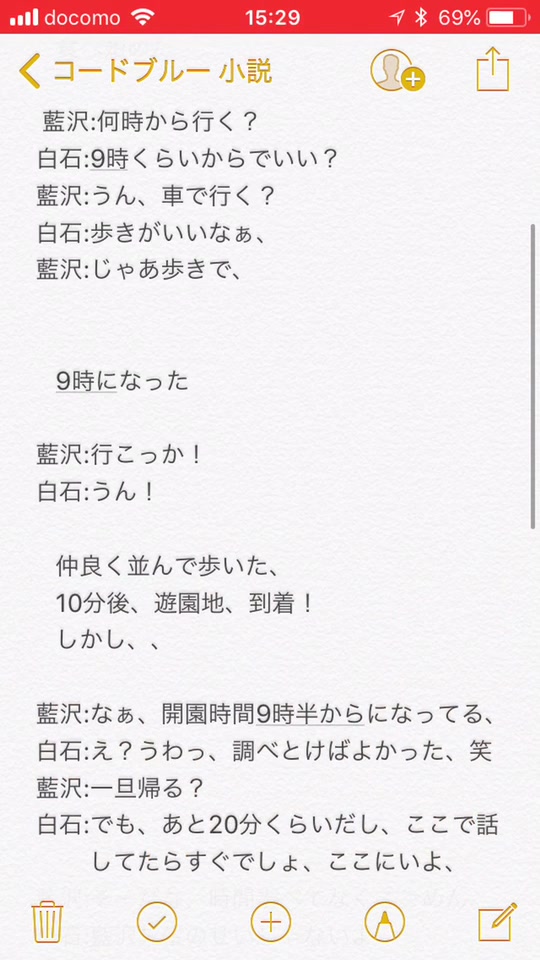 docomo 15:29 69%
コードブルー 小説
藍沢:何時から行く？
白石:9時くらいからでいい？
藍沢:うん、車で行く？
白石:歩きがいいなぁ、
藍沢:じゃあ歩きで、
9時になった
藍沢:行こっか！
白石:うん！
仲良く並んで歩いた、
10分後、遊園地、到着！
しかし、、
藍沢:なぁ、開園時間9時半からになってる、
白石:え？うわっ、調べとけばよかった、笑
藍沢:一旦帰る？
白石:でも、あと20分くらいだし、ここで話
してたらすぐでしょ、ここにいよ、